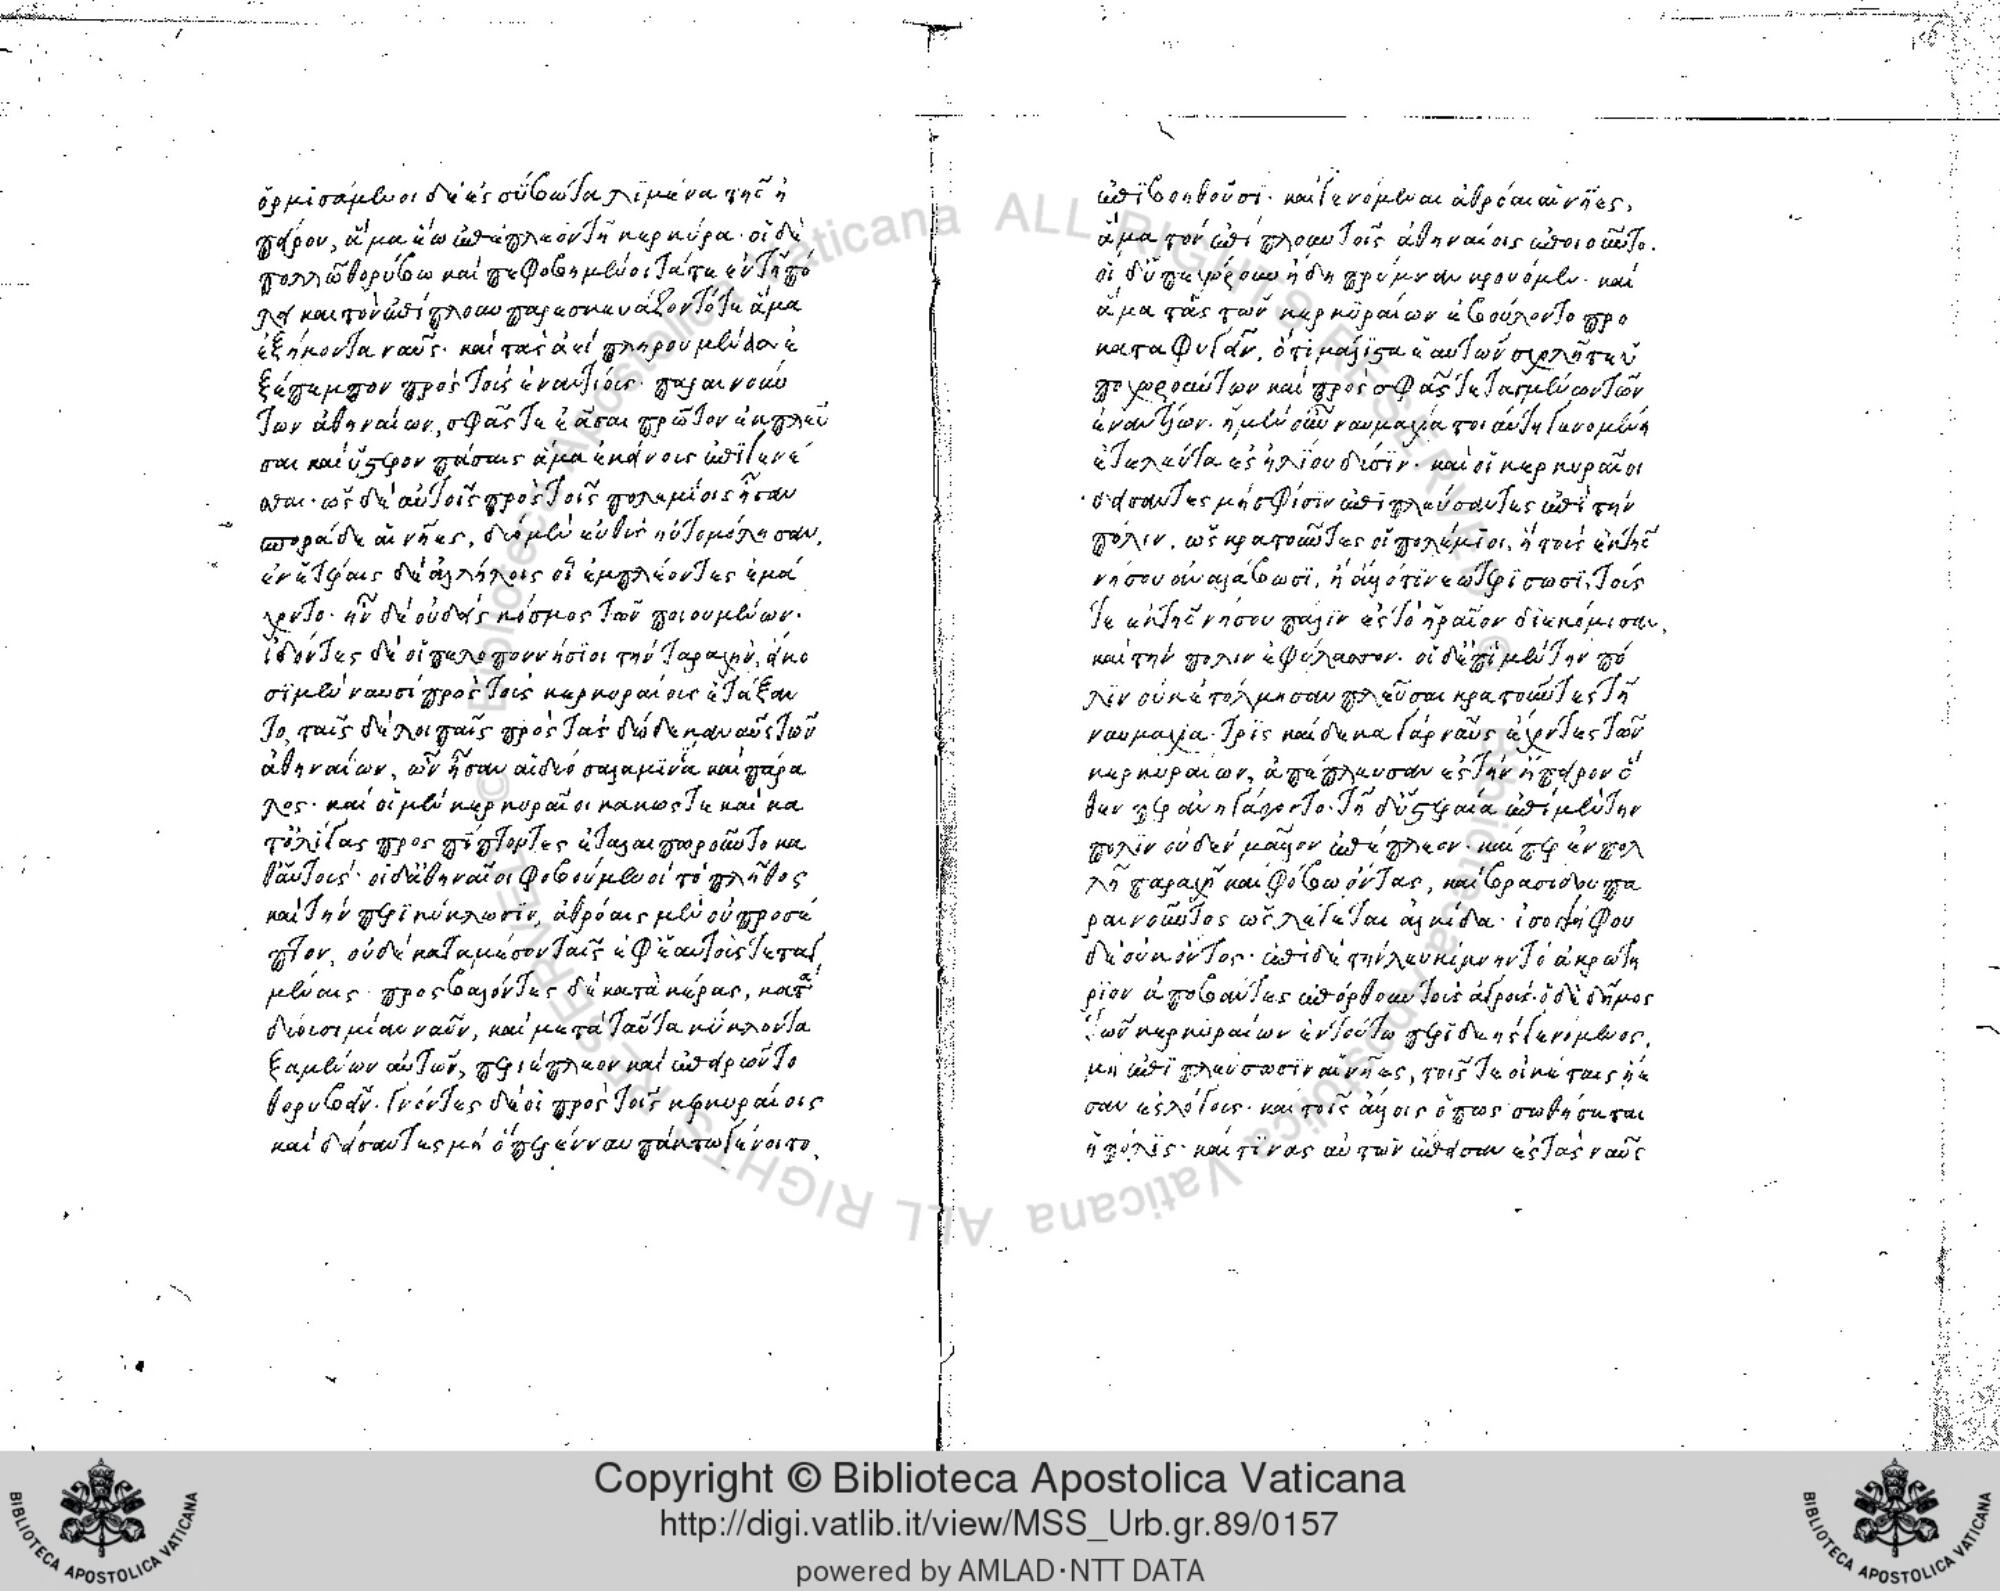 ὁρμισάμενοι δὲ ἐς σύβωτα λιμένα τῆς ἠ
πείρου, ἅμα ἕω ἐπέπλεον τῇ κερκύρα· οἱ δὲ
πολλῶ θορύβω καὶ πεφοβημένοι τά τε ἐν τῇ πό
λει καὶ τὸν ἐπίπλουν παρεσκευάζοντό τε ἅμα
ἑξήκοντα ναῦς· καὶ τὰς ἀεὶ πληρουμένας ἐ
ξέπεμπον πρὸς τοὺς ἐναντίους· παραινούν
των ἀθηναίων, σφᾶς τε ἐᾶσαι πρῶτον ἐκπλεῦ
σαι καὶ ὕστερον πάσαις ἅμα ἐκείνους ἐπιγενέ
σθαι· ὡς δὲ αὐτοῖς πρὸς τοῖς πολεμίοις ἦσαν
σποράδες αἱ νῆες, δύο μὲν εὐθὺς ηὐτομόλησαν,
ἐν ἑτέραις δὲ ἀλλήλοις οἱ ἐμπλέοντες ἐμά
χοντο· ἦν δὲ οὐδεὶς κόσμος τῶν ποιουμένων·
ἰδόντες δὲ οἱ πελοποννήσιοι τὴν ταραχὴν, εἴκο
σι μὲν ναυσὶ πρὸς τοὺς κερκυραίους ἐτάξαν
το, ταῖς δὲ λοιπαῖς πρὸς τὰς δώδεκα ναῦς τῶν
ἀθηναίων, ὧν ἦσαν αἱ δύο σαλαμινία καὶ πάρα
λος· καὶ οἱ μὲν κερκυραῖοι κακῶς τε καὶ κα
τ' ὀλίγας προσπίπτοντες ἐταλαιπωροῦντο κα
θ' αὑτούς· οἱ δ' ἀθηναῖοι φοβούμενοι τὸ πλῆθος
καὶ τὴν περικύκλωσιν, ἀθρόαις μὲν οὐ προσέ
πιπτον, οὐδὲ κατὰ μέσον ταῖς ἐφ' ἑαυτοὺς τεταγ
μέναις· προσβαλόντες δὲ κατὰ κέρας, κατα
δύουσι μίαν ναῦν, καὶ μετὰ ταῦτα κύκλον τα
ξαμένων αὐτῶν, περιέπλεον καὶ ἐπειρῶντο
θορυβεῖν· γνόντες δὲ οἱ πρὸς τοῖς κερκυραίοις
καὶ δείσαντες μὴ ὅπερ ἐν ναυπάκτω γένοιτο,
ἐπιβοηθοῦσι· καὶ γενόμεναι ἀθρόαι αἱ νῆες,
ἅμα τὸν ἐπίπλουν τοῖς ἀθηναίοις ἐποιοῦντο.
οἱ δ' ὑπεχώρουν ἤδη πρύμναν κρουόμενοι· καὶ
ἅμα τὰς τῶν κερκυραίων ἐβούλοντο προ
καταφυγεῖν, ὅτι μάλιστα ἑαυτῶν σχολῆ τε ὑ
ποχωρούντων καὶ πρὸς σφᾶς τεταγμένων τῶν
ἐναντίων· ἡ μὲν οὖν ναυμαχία τοιαύτη γενομένη
ἐτελεύτα ἐς ἡλίου δύσιν· καὶ οἱ κερκυραῖοι
δείσαντες μὴ σφίσιν ἐπιπλεύσαντες ἐπὶ τὴν
πόλιν, ὡς κρατοῦντες οἱ πολέμιοι, ἢ τοὺς ἐκ τῆς
νήσου ἀναλάβωσι, ἢ ἄλλό τι νεωτερίσωσι, τούς
τε ἐκ τῆς νήσου πάλιν ἐς τὸ ἡραῖον διεκόμισαν,
καὶ τὴν πόλιν ἐφύλασσον· οἱ δ' ἐπὶ μὲν τὴν πό
λιν οὐκ ἐτόλμησαν πλεῦσαι κρατοῦντες τῆ
ναυμαχία· τρὶς καίδεκα γὰρ ναῦς ἔχοντες τῶν
κερκυραίων, ἀπέπλευσαν ἐς τὴν ἤπειρον ὅ
θεν περ ἀνηγάγοντο· τῆ δ' ὑστεραία ἐπὶ μὲν τὴν
πόλιν οὐδὲν μᾶλλον ἐπέπλεον· καί περ ἐν πολ
λῆ ταραχῆ καὶ φόβω ὄντας, καὶ βρασίδου πα
ραινοῦντος ὡς λέγεται ἀλκίδα· ἰσοψήφου
δὲ οὐκ ὄντος· ἐπὶ δὲ τὴν λευκίμνην τὸ ἀκρωτή
ριον ἀποβάντες ἐπόρθουν τοὺς ἀγρούς· ὁ δὲ δῆμος
τῶν κερκυραίων ἐν τούτω περιδεὴς γενόμενος,
μὴ ἐπιπλεύσωσιν αἱ νῆες, τοῖς τε ἱκέταις ἤε
σαν ἐς λόγους· καὶ τοῖς ἄλλοις ὅπως σωθήσεται
ἡ πόλις· καί τινας αὐτῶν ἔπεισαν ἐς τὰς ναῦς
Copyright © Biblioteca Apostolica Vaticana
http://digi.vatlib.it/view/MSS_Urb.gr.89/0157
powered by AMLAD·NTT DATA